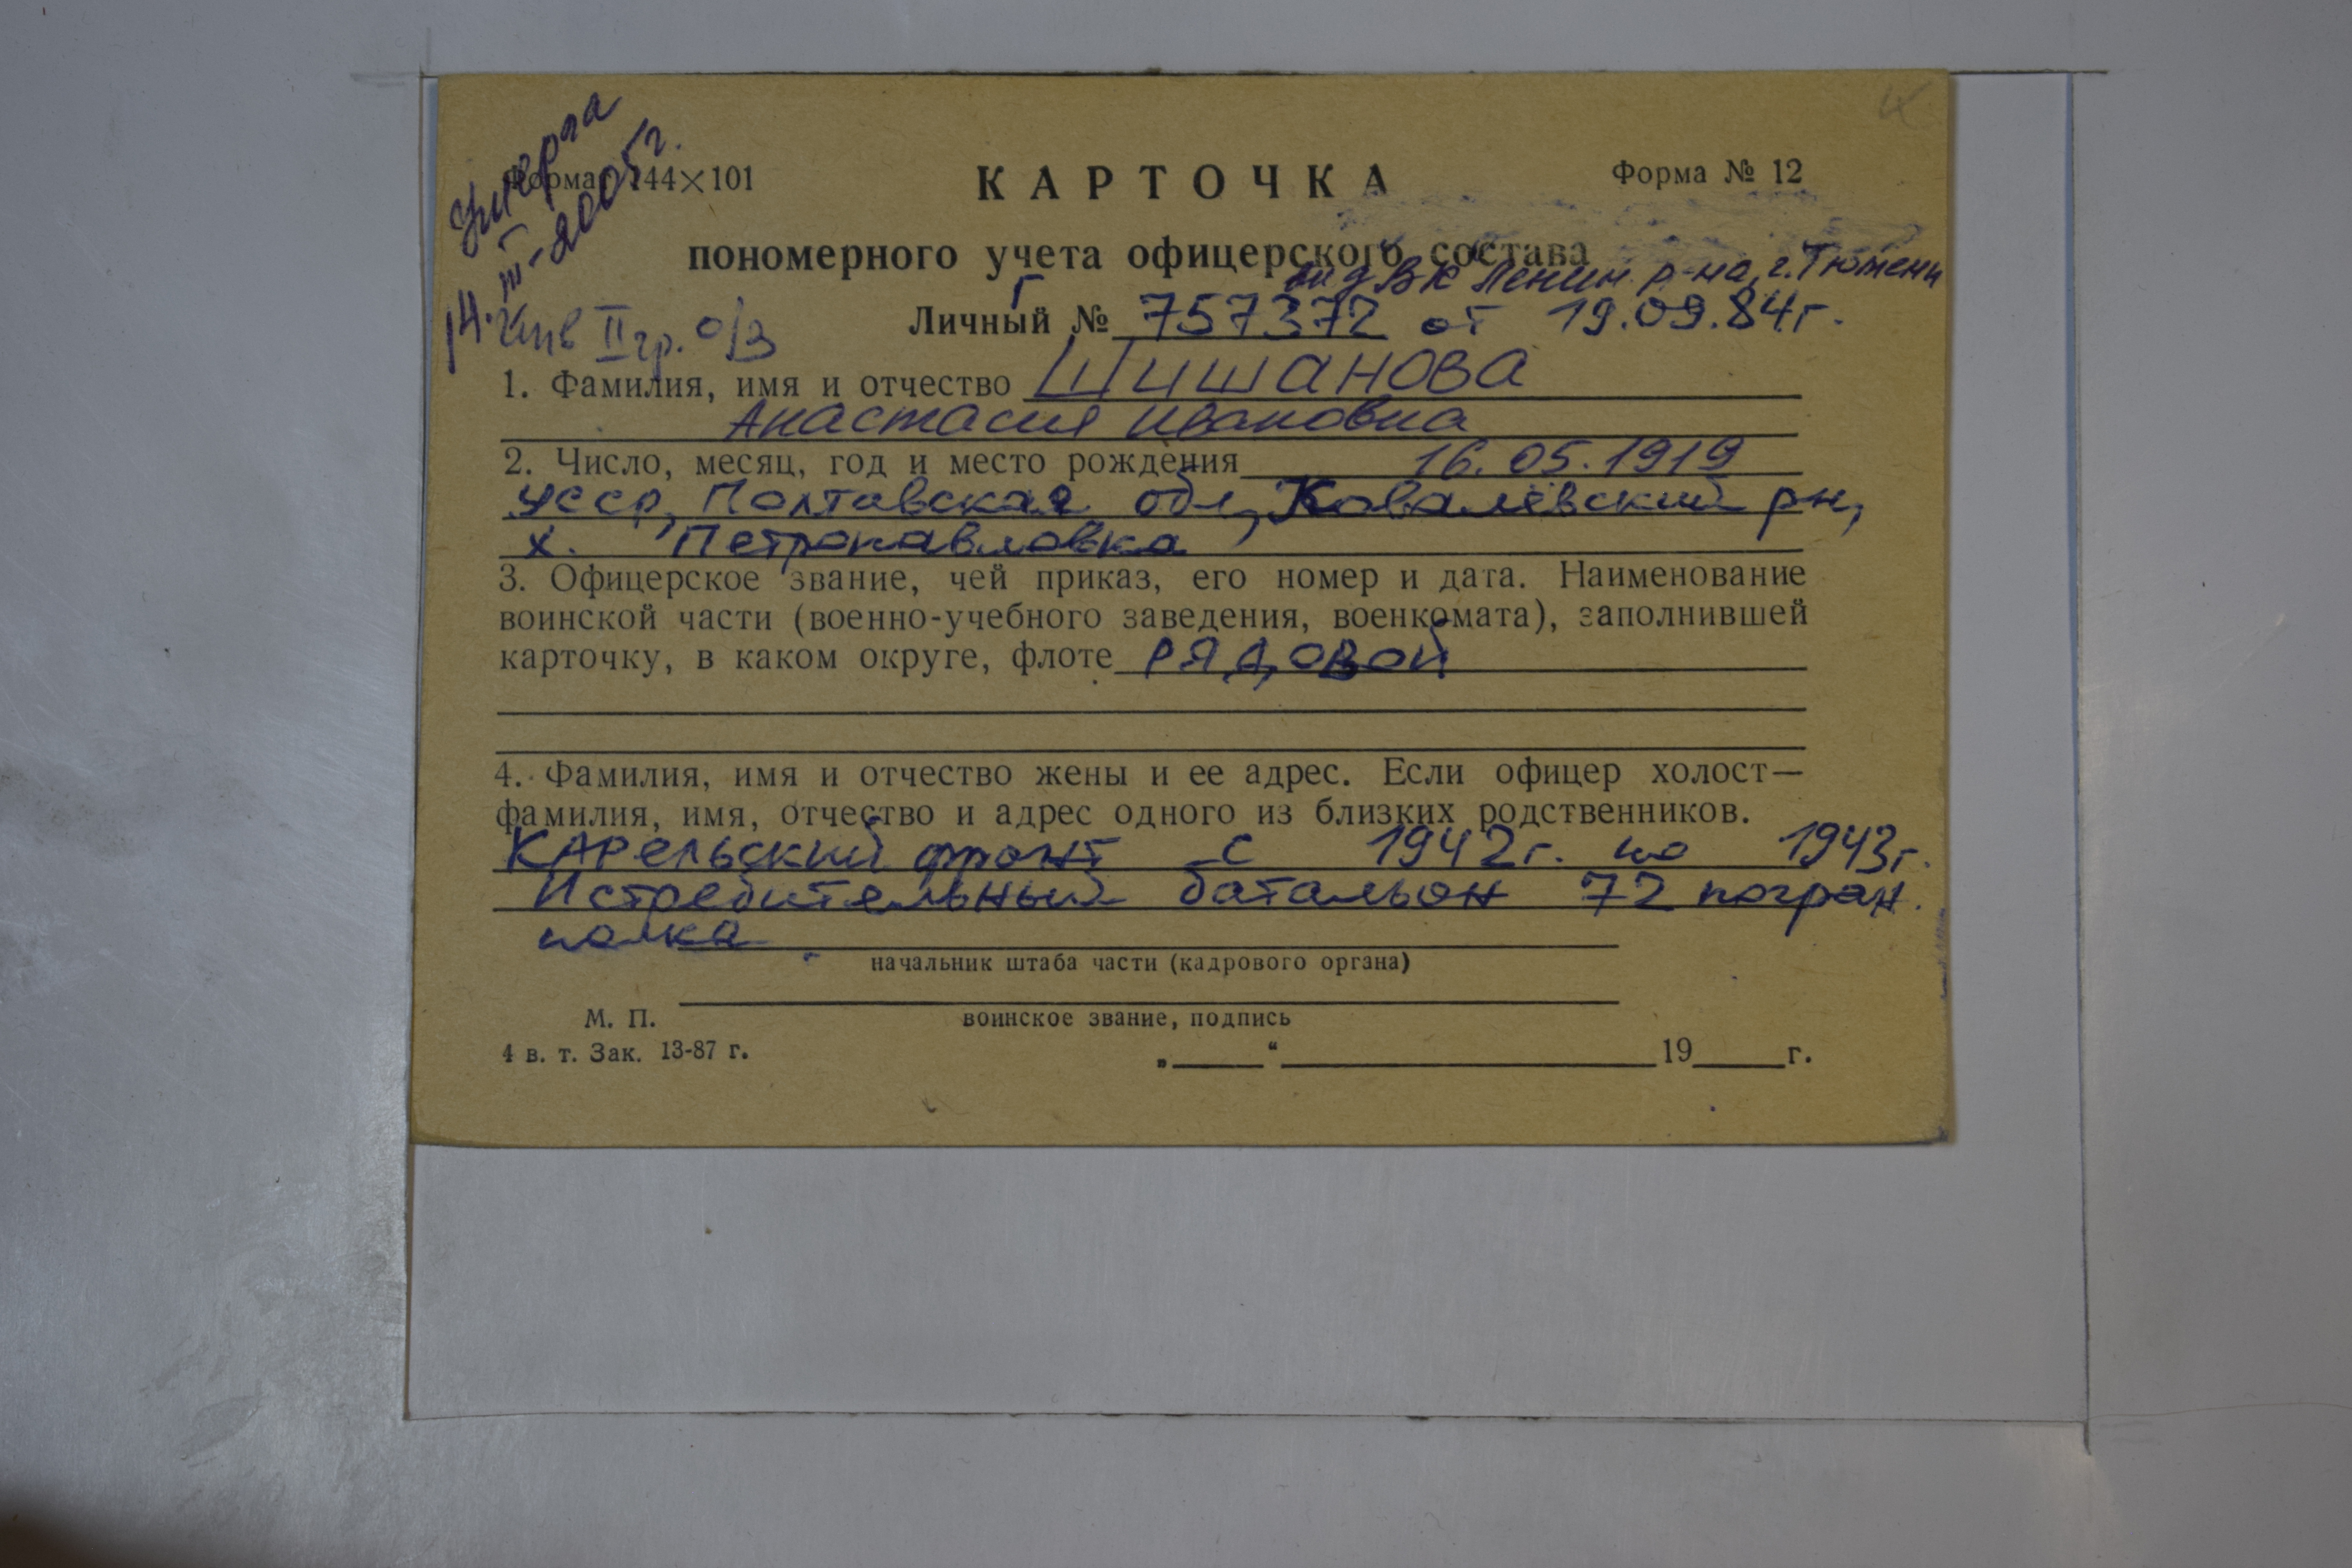 умерла
14.III-2005г.
Формат 144×101
Форма № 12
КАРТОЧКА
пономерного учета офицерского состава
выд ВК Ленин. р-на, г. Тюмени
Личный № Г 757372 от 19.09.84г.
Инв II гр. о/з
1. Фамилия, имя и отчество Шишанова
Анастасия Ивановна
2. Число, месяц, год и место рождения 16.05.1919
УССР, Полтавская обл, Ковалёвский рн,
х. Петропавловка
3. Офицерское звание, чей приказ, его номер и дата. Наименование
воинской части (военно-учебного заведения, военкомата), заполнившей
карточку, в каком округе, флоте рядовой
4. Фамилия, имя и отчество жены и ее адрес. Если офицер холост—
фамилия, имя, отчество и адрес одного из близких родственников.
Карельский фронт с 1942г. по 1943г.
Истребительный батальон 72 погран.
полка
начальник штаба части (кадрового органа)
М. П.
воинское звание, подпись
4 в. т. Зак. 13-87 г.
„ “ 19 г.